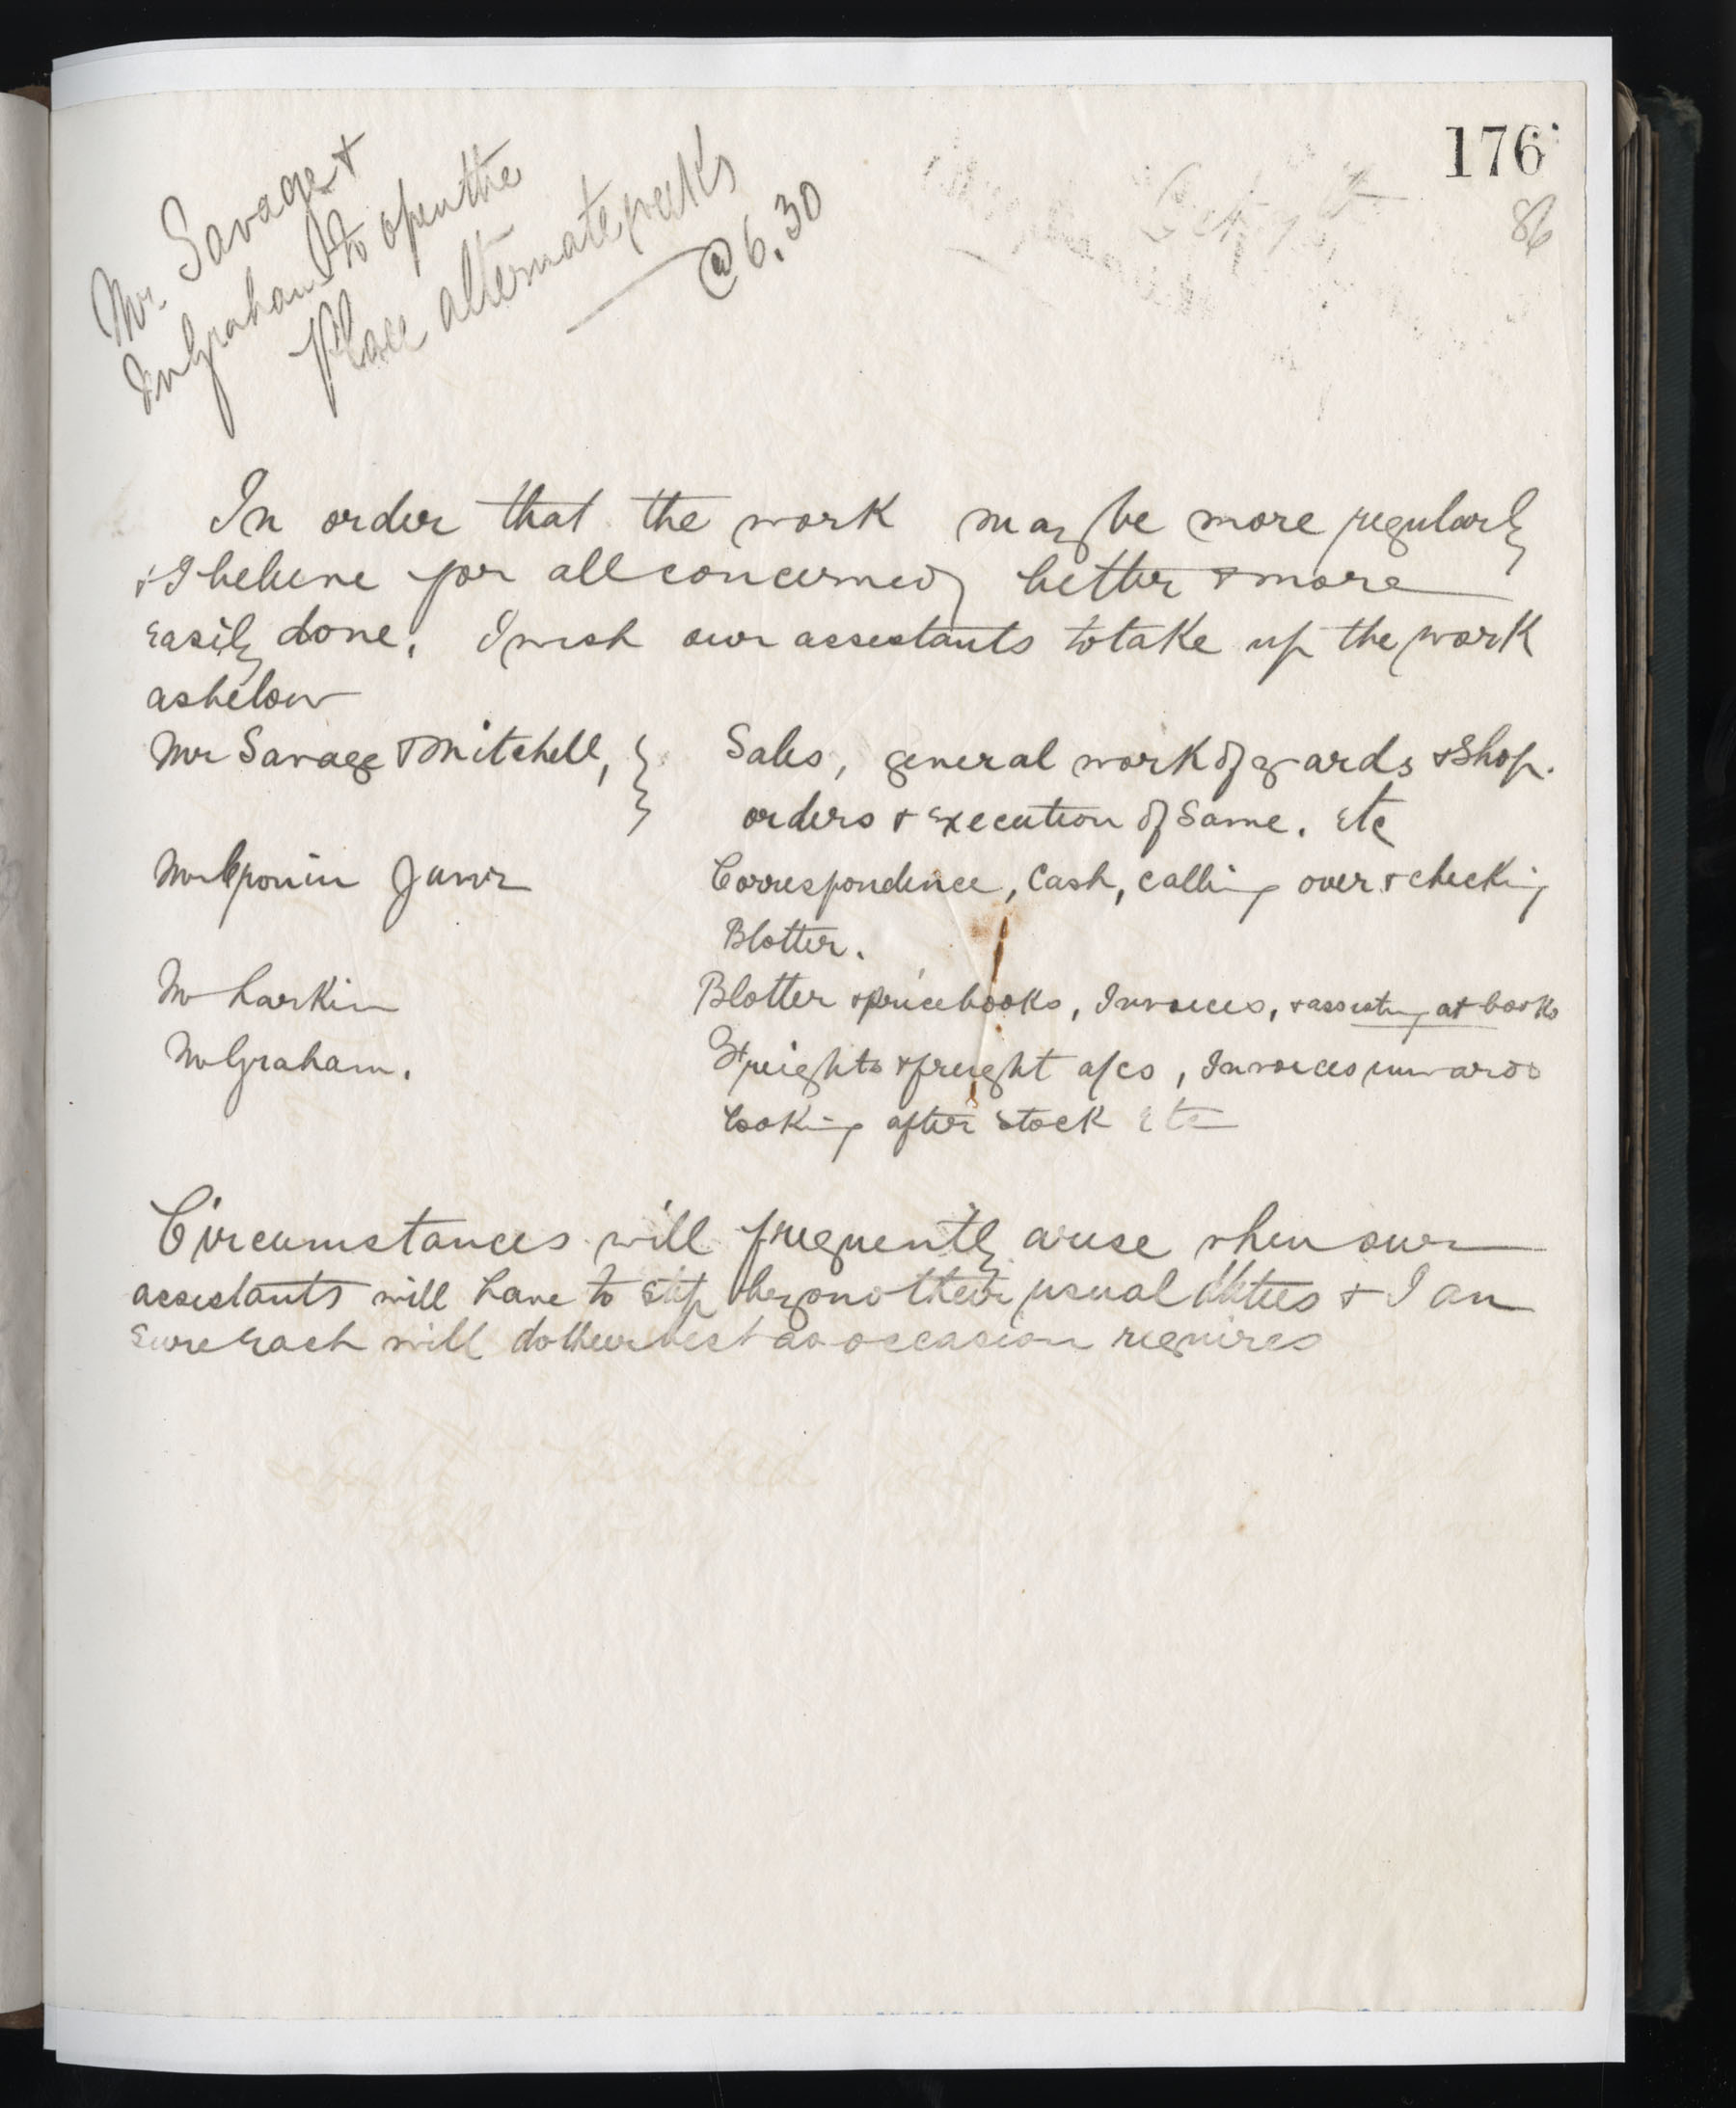 176
86
Mr. Savage &
Mr Graham to open the
Place alternate weeks
@ 6.30
In order that the work may be more regularly
& I believe for all concerned better & more
easily done, I wish our assistants to take up the work
as below
Mr Savage & Mitchell, } Sales, general work of yards & Shop.
orders & execution of Same. etc
Mr Cronin Junr Correspondence, Cash, calling over & checking
Blotter.
Mr Larkin Blotter & price books, Invoices, & assisting at books
Mr Graham. Freights & freight a/cs, Invoices inwards
Looking after Stock etc
Circumstances will frequently arise when our
assistants will have to step beyond their usual duties & I am
sure each will do their best as occasion requires